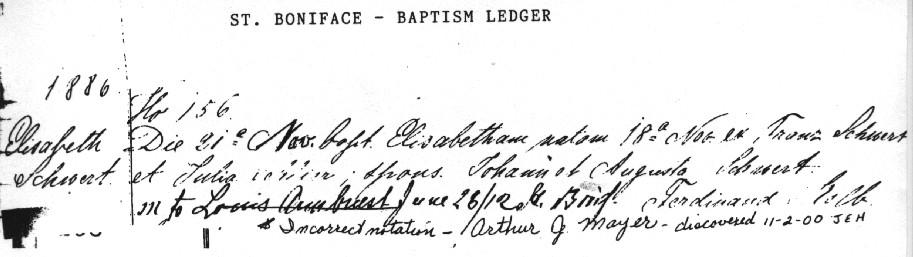 ST. BONIFACE - BAPTISM LEDGER
1886
No 156
Elisabeth Schwert
Die 21ª Nov. bapt. Elisabetham natam 18ª Nov. ex Franz Schwert
et Julia spons. Johann et Augusta Schwert
m to Louis Armbrust June 26/12 St. Bonif. Ferdinand
* Incorrect notation - Arthur J. Mayer - discovered 11-2-00 JEH